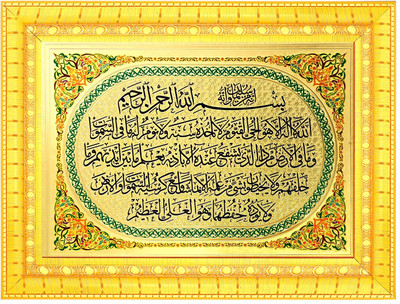 بسم الله الرحمن الرحيم
الله لا اله الا هو الحي القيوم لا تاخذه سنة ولا نوم له ما في السموات
وما في الارض من ذا الذي يشفع عنده الا باذنه يعلم ما بين ايديهم وما
خلفهم ولا يحيطون بشيء من علمه الا بما شاء وسع كرسيه السموات والارض
ولا يؤده حفظهما وهو العلي العظيم